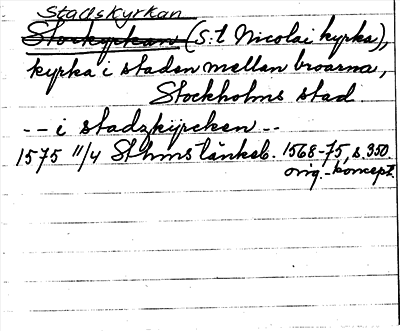 Stadskyrkan
Storkyrkan (S:t Nicolai kyrka),
kyrka i staden mellan broarna,
Stockholms stad
-- i stadzkijrcken --
1575 11/4 Sthms tänkeb. 1568-75, s. 350.
orig.-koncept.